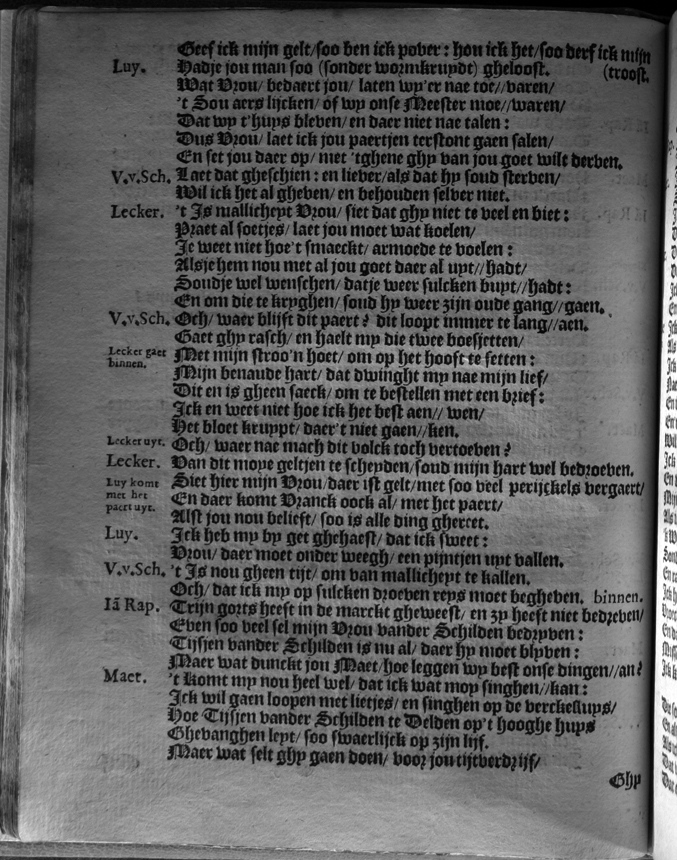 Geef ick mijn gelt/ soo ben ick pover: hou ick het/ soo derf ick mijn
(troost.
Luy. Hadje jou man soo (sonder wormkruydt) gheloost.
Wat Vrou/ bedaert jou/ laten wy'er nae toe//varen/
't Sou aers lijcken/ of wy onse Meester moe//waren/
Dat wy t'huys bleven/ en daer niet nae talen:
Dus Vrou/ laet ick jou paertjen terstont gaen salen/
En set jou daer op/ met 'tghene ghy van jou goet wilt derven.
V.v.Sch. Laet dat gheschien: en liever/ als dat hy soud sterven/
Wil ick het al gheven/ en behouden selver niet.
Lecker. 't Is mallicheyt Vrou/ siet dat ghy niet te veel en biet:
Praet al soetjes/ laet jou moet wat koelen/
Je weet niet hoe't smaeckt/ armoede te voelen:
Alsje hem nou met al jou goet daer al uyt//hadt/
Soudje wel wenschen/ datje weer sulcken buyt//hadt:
En om die te kryghen/ soud hy weer zijn oude gang//gaen.
V.v.Sch. Och/ waer blijft dit paert? dit loopt immer te lang//aen.
Gaet ghy rasch/ en haelt my die twee boesjetten/
Lecker gaet binnen. Met mijn stroo'n hoet/ om op het hooft te setten:
Mijn benaude hart/ dat dwinght my nae mijn lief/
Dit en is gheen saeck/ om te bestellen met een brief:
Ick en weet niet hoe ick het best aen//wen/
Het bloet kruypt/ daer't niet gaen//ken.
Lecker uyt. Och/ waer nae mach dit volck toch vertoeven?
Lecker. Van dit moye geltjen te scheyden/ soud mijn hart wel bedroeven.
Luy komt met het paert uyt. Siet hier mijn Vrou/ daer ist gelt/ met soo veel perijckels vergaert/
En daer komt Vranck oock al/ met het paert/
Alst jou nou belieft/ soo is alle dingghereet.
Luy. Ick heb my by get ghehaest/ dat ick sweet:
Vrou/ daer moet onder weegh/ een pijntjen uyt vallen.
V.v.Sch. 't Is nou gheen tijt/ om van mallicheyt te kallen.
Och/ dat ick my op sulcken droeven reys moet begheven. binnen.
Iã Rap. Trijn gorts heeft in de marckt gheweest/ en zy heeft niet bedreven/
Even soo veel sel mijn Vrou vander Schilden bedryven:
Tijsjen vander Schilden is nu al/ daer hy moet blyven:
Maer wat dunckt jou Maet/ hoe leggen wy best onse dingen//an?
Maet. 't Komt my nou heel wel/ dat ick wat moy singhen//kan:
Ick wil gaen loopen met lietjes/ en singhen op de verckesluys/
Hoe Tijsjen vander Schilden te Delden op't hooghe huys
Ghevanghen leyt/ soo swaerlijck op zijn lijf.
Maer wat selt ghy gaen doen/ voor jou tijtverdrijf/
Ghy